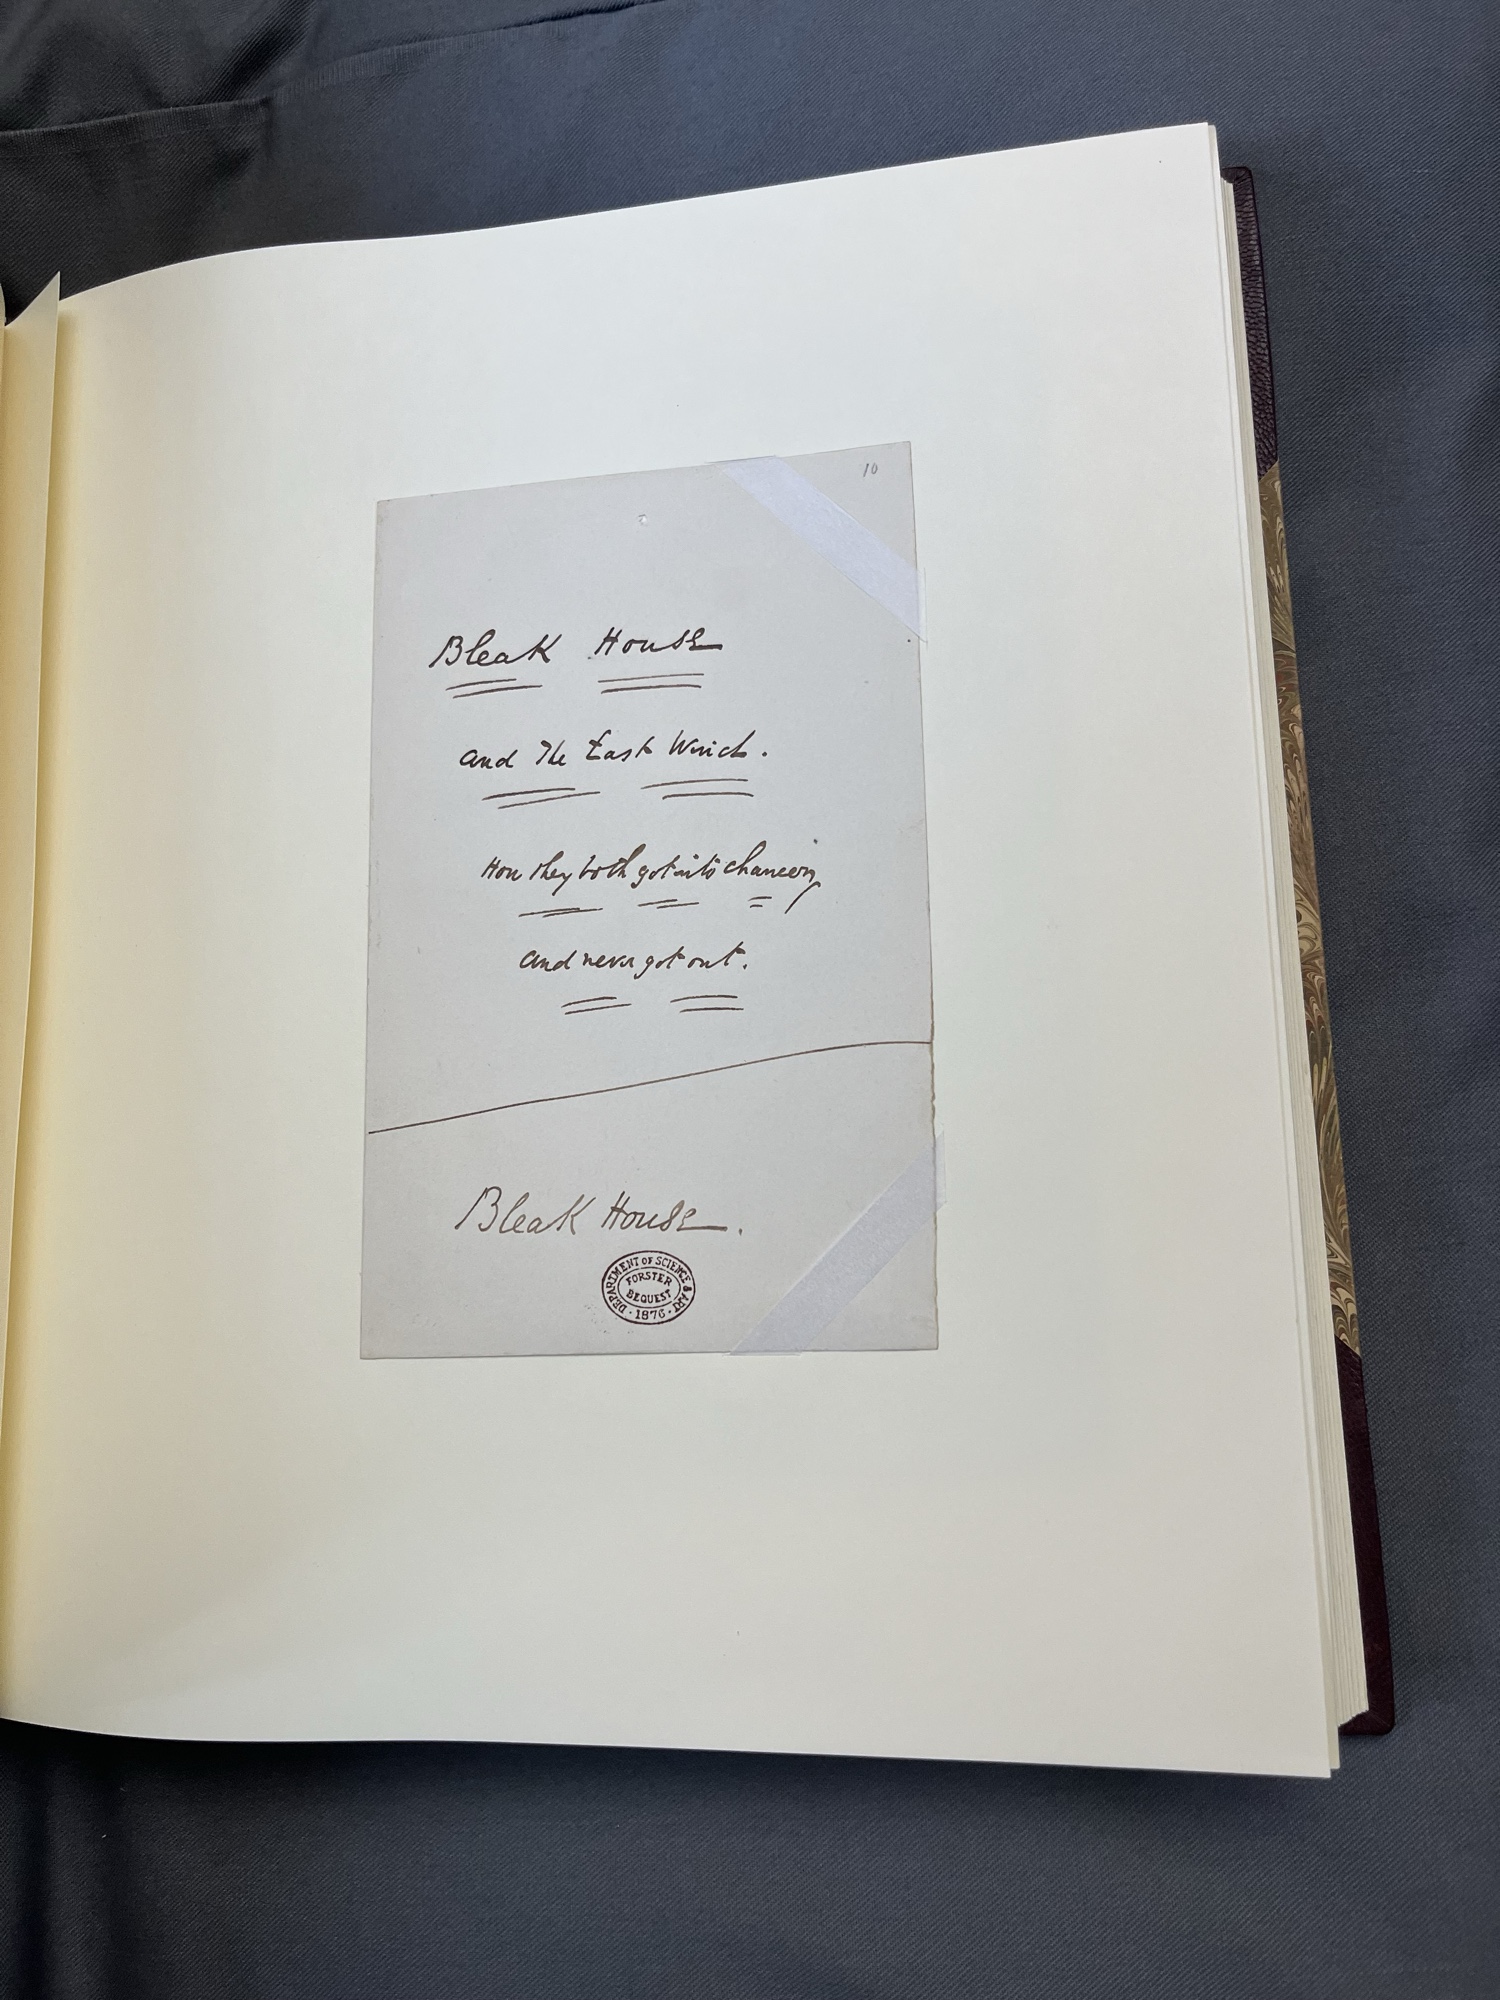 10
Bleak House
and The East Wind.
How they both got into chancery
and never got out.
Bleak House.
DEPARTMENT OF SCIENCE & ART
FORSTER
BEQUEST
· 1876 ·